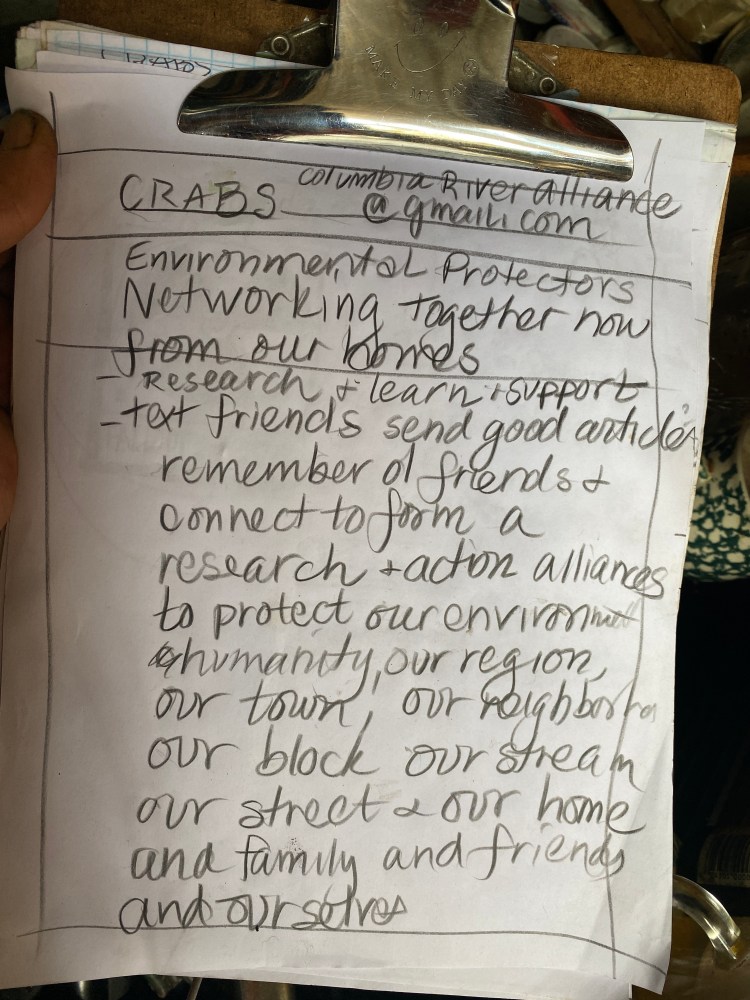 CRABS columbia River alliance
@gmail.com
Environmental Protectors
Networking together now
from our homes
- Research + learn + support
- text friends send good articles
remember ol friends +
connect to form a
research + action alliances
to protect our environment
& humanity, our region,
our town, our neighborho
our block our stream
our street & our home
and family and friends
and ourselves